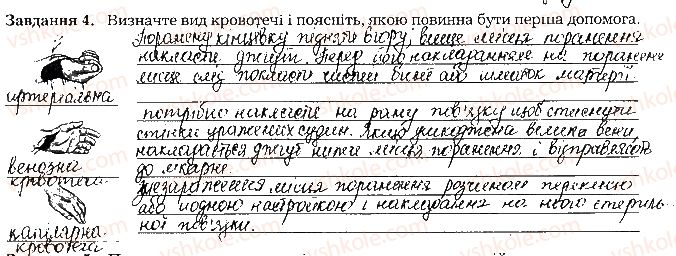 Завдання 4. Визначте вид кровотечі і поясніть, якою повинна бути перша допомога.
Поранену кінцівку підняти вгору, вище місця поранення
накласти джгут. Перед його накладанням на поранене
місце слід покласти чистий бинт або шматок матерії.
артеріальна
потрібно накласти на рану пов'язку щоб стиснути
стінки уражених судин. Якщо ушкоджена велика вена,
накладається джгут нижче місця поранення і відправляють
до лікарні.
венозна
кровотеча
знезараження місця поранення розчином перекисю
або йодною настойкою і накладання на нього стериль-
ної пов'язки.
капілярна
кровотеча
vshkole.com